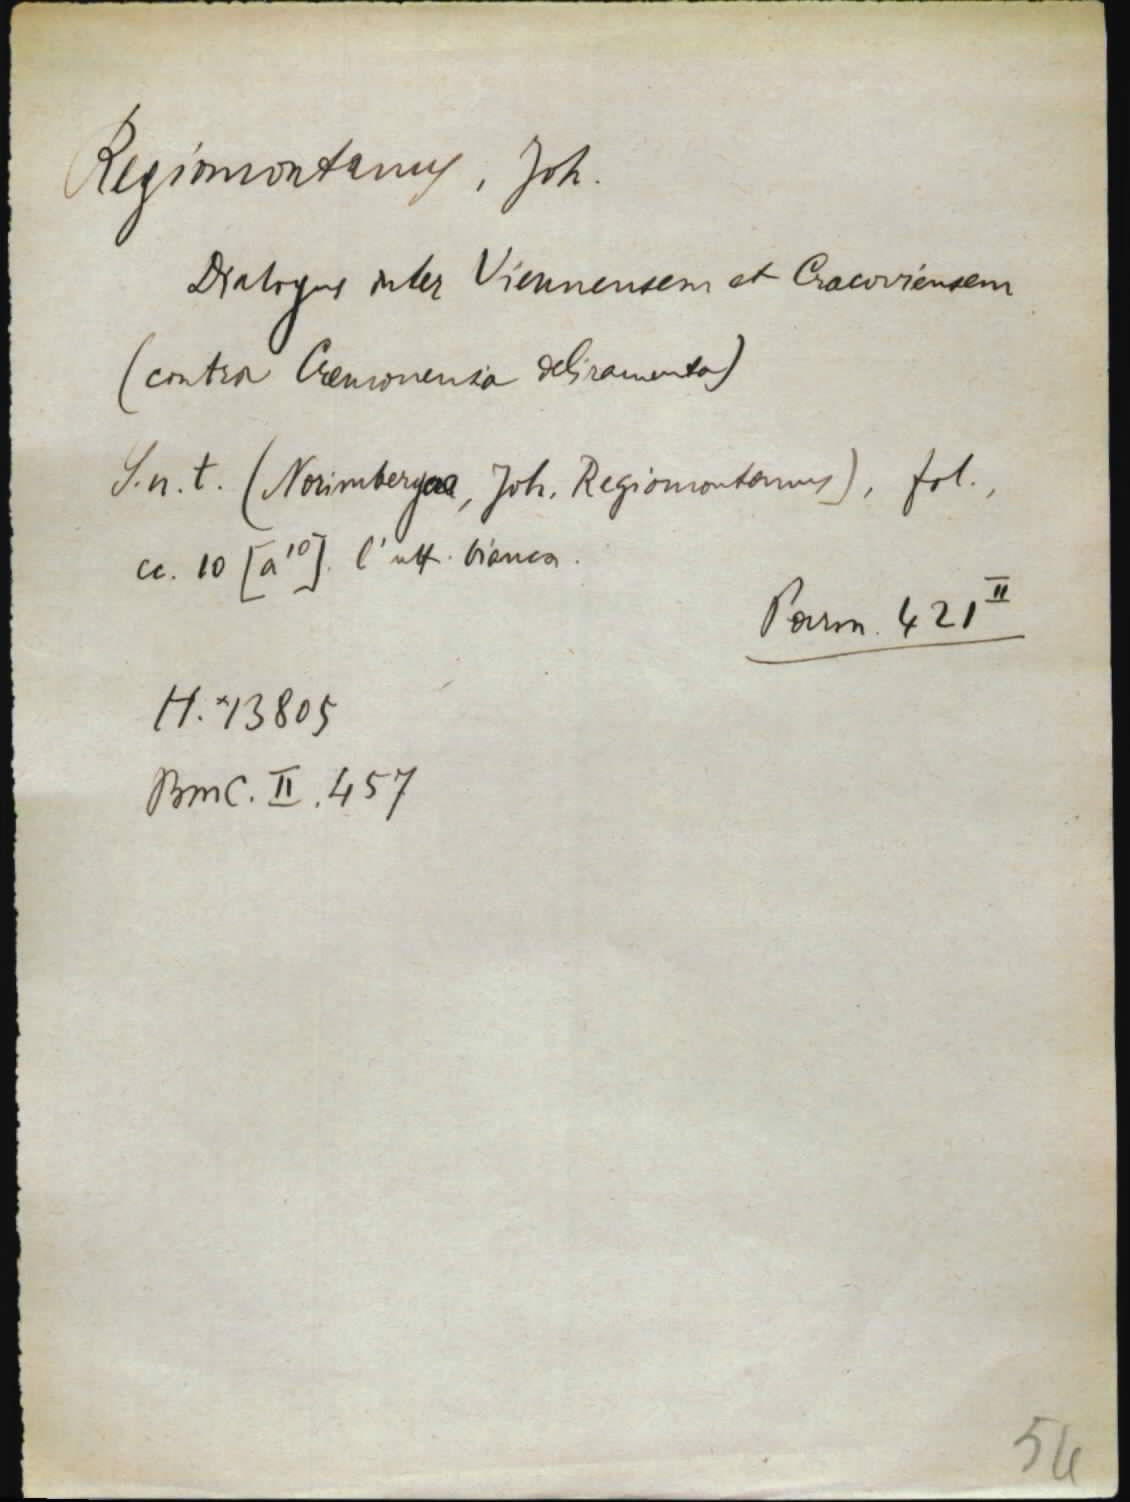 Regiomontanus, Joh.
Dialogus inter Viennensem et Cracoviensem
(contra Cremonensia deliramenta)
S.n.t. (Norimbergae, Joh. Regiomontanus), fol.,
cc. 10 [a¹⁰]. l'ult. bianca.
Parm. 421 II
H. *13805
BMC. II. 457
54